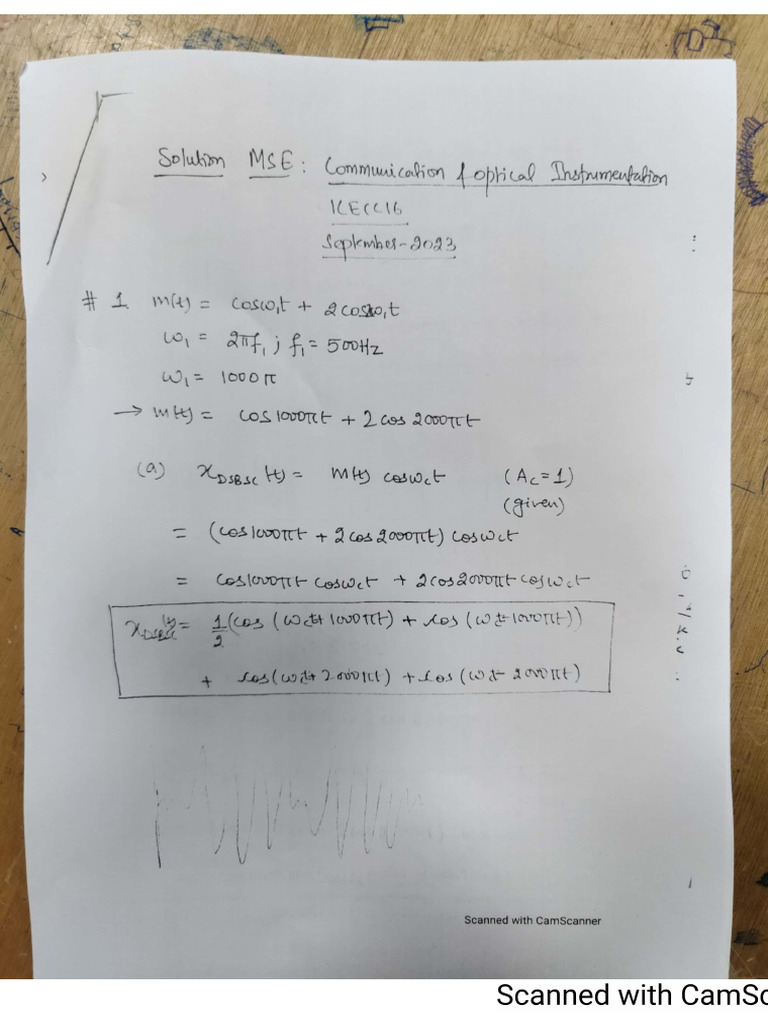 Solution MSE: Communication & optical Instrumentation
ICECC16
September-2023
# 1. m(t) = cosω₁t + 2cos2ω₁t
ω₁ = 2πf₁ ; f₁ = 500Hz
ω₁ = 1000π
→ m(t) = cos1000πt + 2 cos 2000πt
(a) x_DSBSC(t) = m(t) cosω_ct (A_C=1)
(given)
= (cos1000πt + 2cos2000πt) cosω_ct
= cos1000πt cosω_ct + 2cos2000πt cosω_ct
x_DSBSC(t) = 1/2 (cos (ω_ct+1000πt) + cos (ω_ct-1000πt))
+ cos(ω_ct+2000πt) + cos (ω_ct-2000πt)
Scanned with CamScanner
Scanned with CamSc